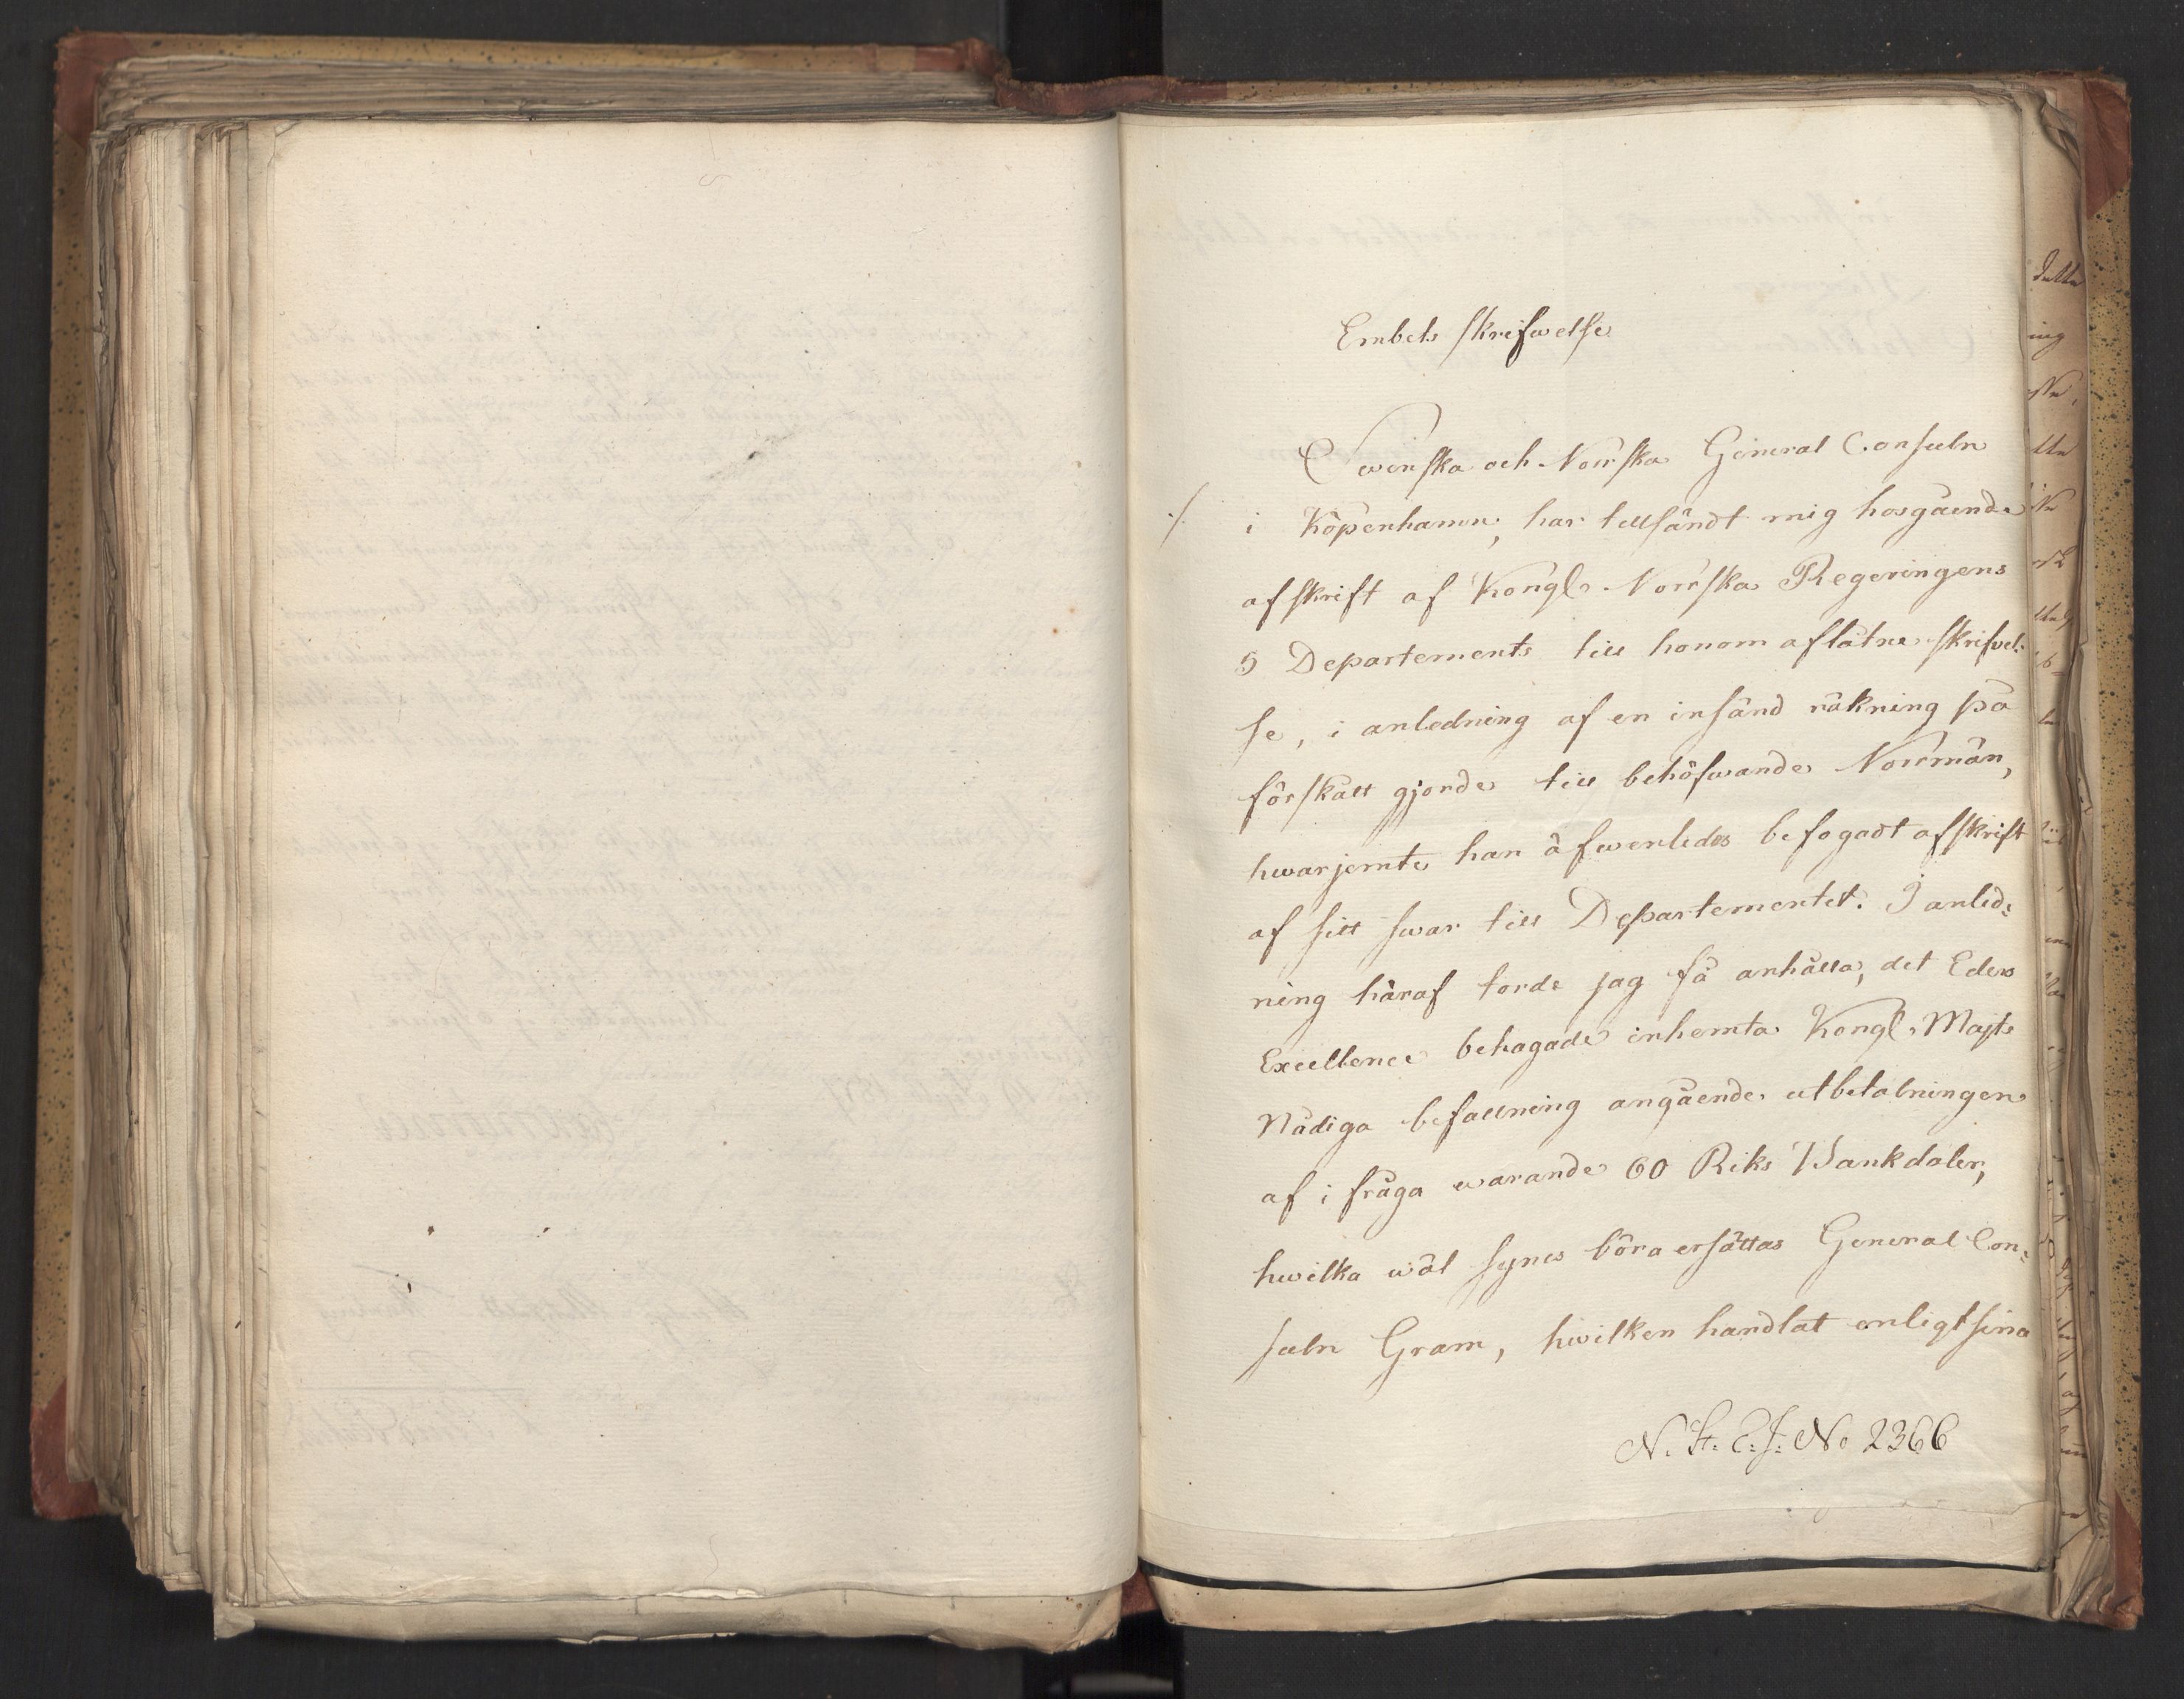 Embets skrifwelse
Swenska och Norrska General Consuln
./. i Köpenhamn, har tillsändt mig hosgående
afskrift af Kongl. Norrska Regeringens
5 Departements till honom aflåtne skrifvel-
se, i anledning af en insänd räkning på
förskått gjorde till behöfwande Norrmän,
hwarjemte han äfwenledes befogadt afskrift
af sitt swar till Departementet. I anled-
ning häraf torde jag få anhålla, det Eders
Excellence behagade inhemta Kongl. Majts
Nådiga befallning angående utbetalningen
af i fråga warande 60 Riks Bankdaler,
hwilka wäl synes böra ersättas General Con-
suln Gram, hwilken handlat enligt sina
N. St. E. J. No 2366